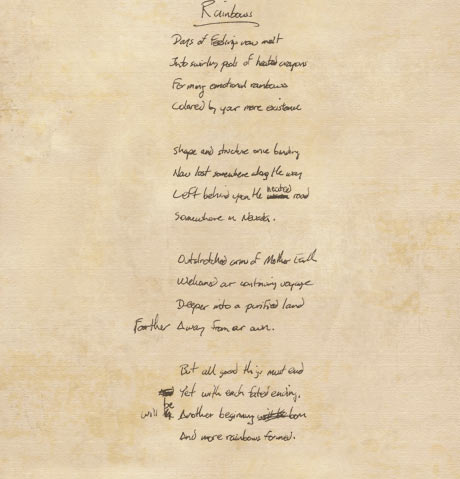 Rainbows
Days of Feelings now melt
Into swirling pools of heated crayons
Forming emotional rainbows
Colored by your mere existence
Shape and structure once binding
Now lost somewhere along the way
Left behind upon the neutral road
Somewhere in Nevada.
Outstretched arms of Mother Earth
Welcomed our continuing voyage
Deeper into a purified land
Farther Away from our own.
But all good things must end
Yet with each fated ending,
will be Another beginning born
And more rainbows formed.